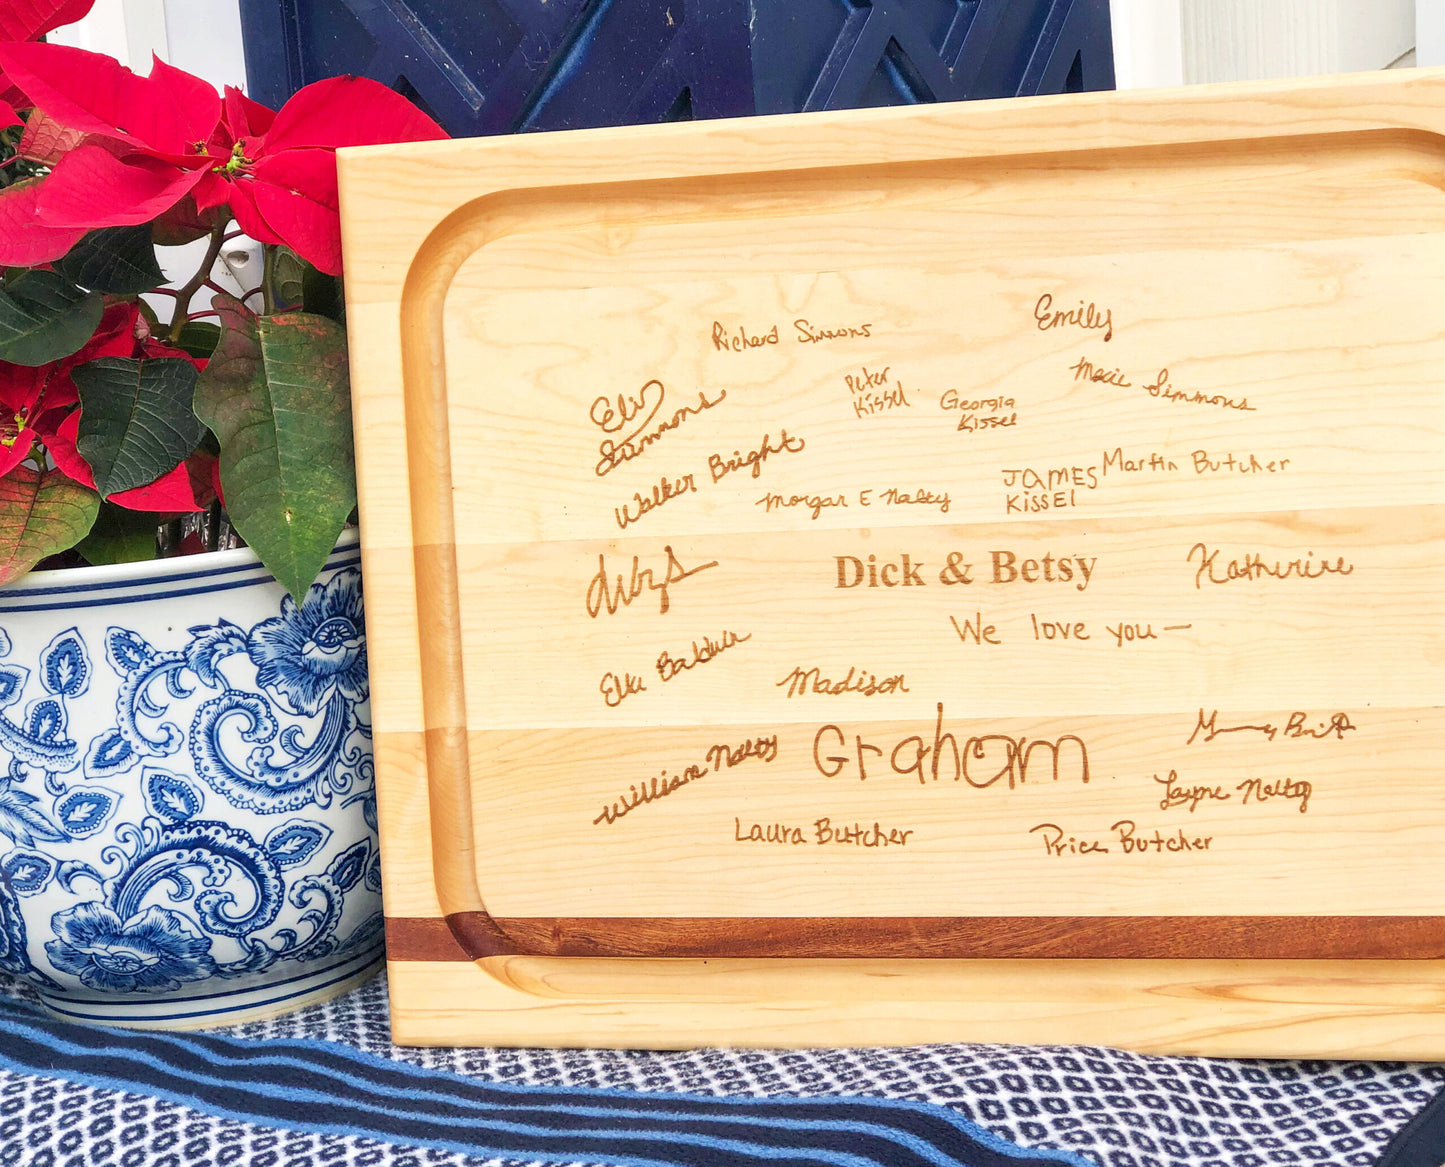 Emily
Richard Simmons
Macie Simmons
Peter
Kissel
Georgia
Kissel
Simmons
Walker Bright
Martin Butcher
JAMES
KissEl
Morgan E Nalty
Dick & Betsy
Katherine
We love you—
Baldwin
Madison
Graham
William Nalty
Layne Nalty
Laura Butcher
Price Butcher